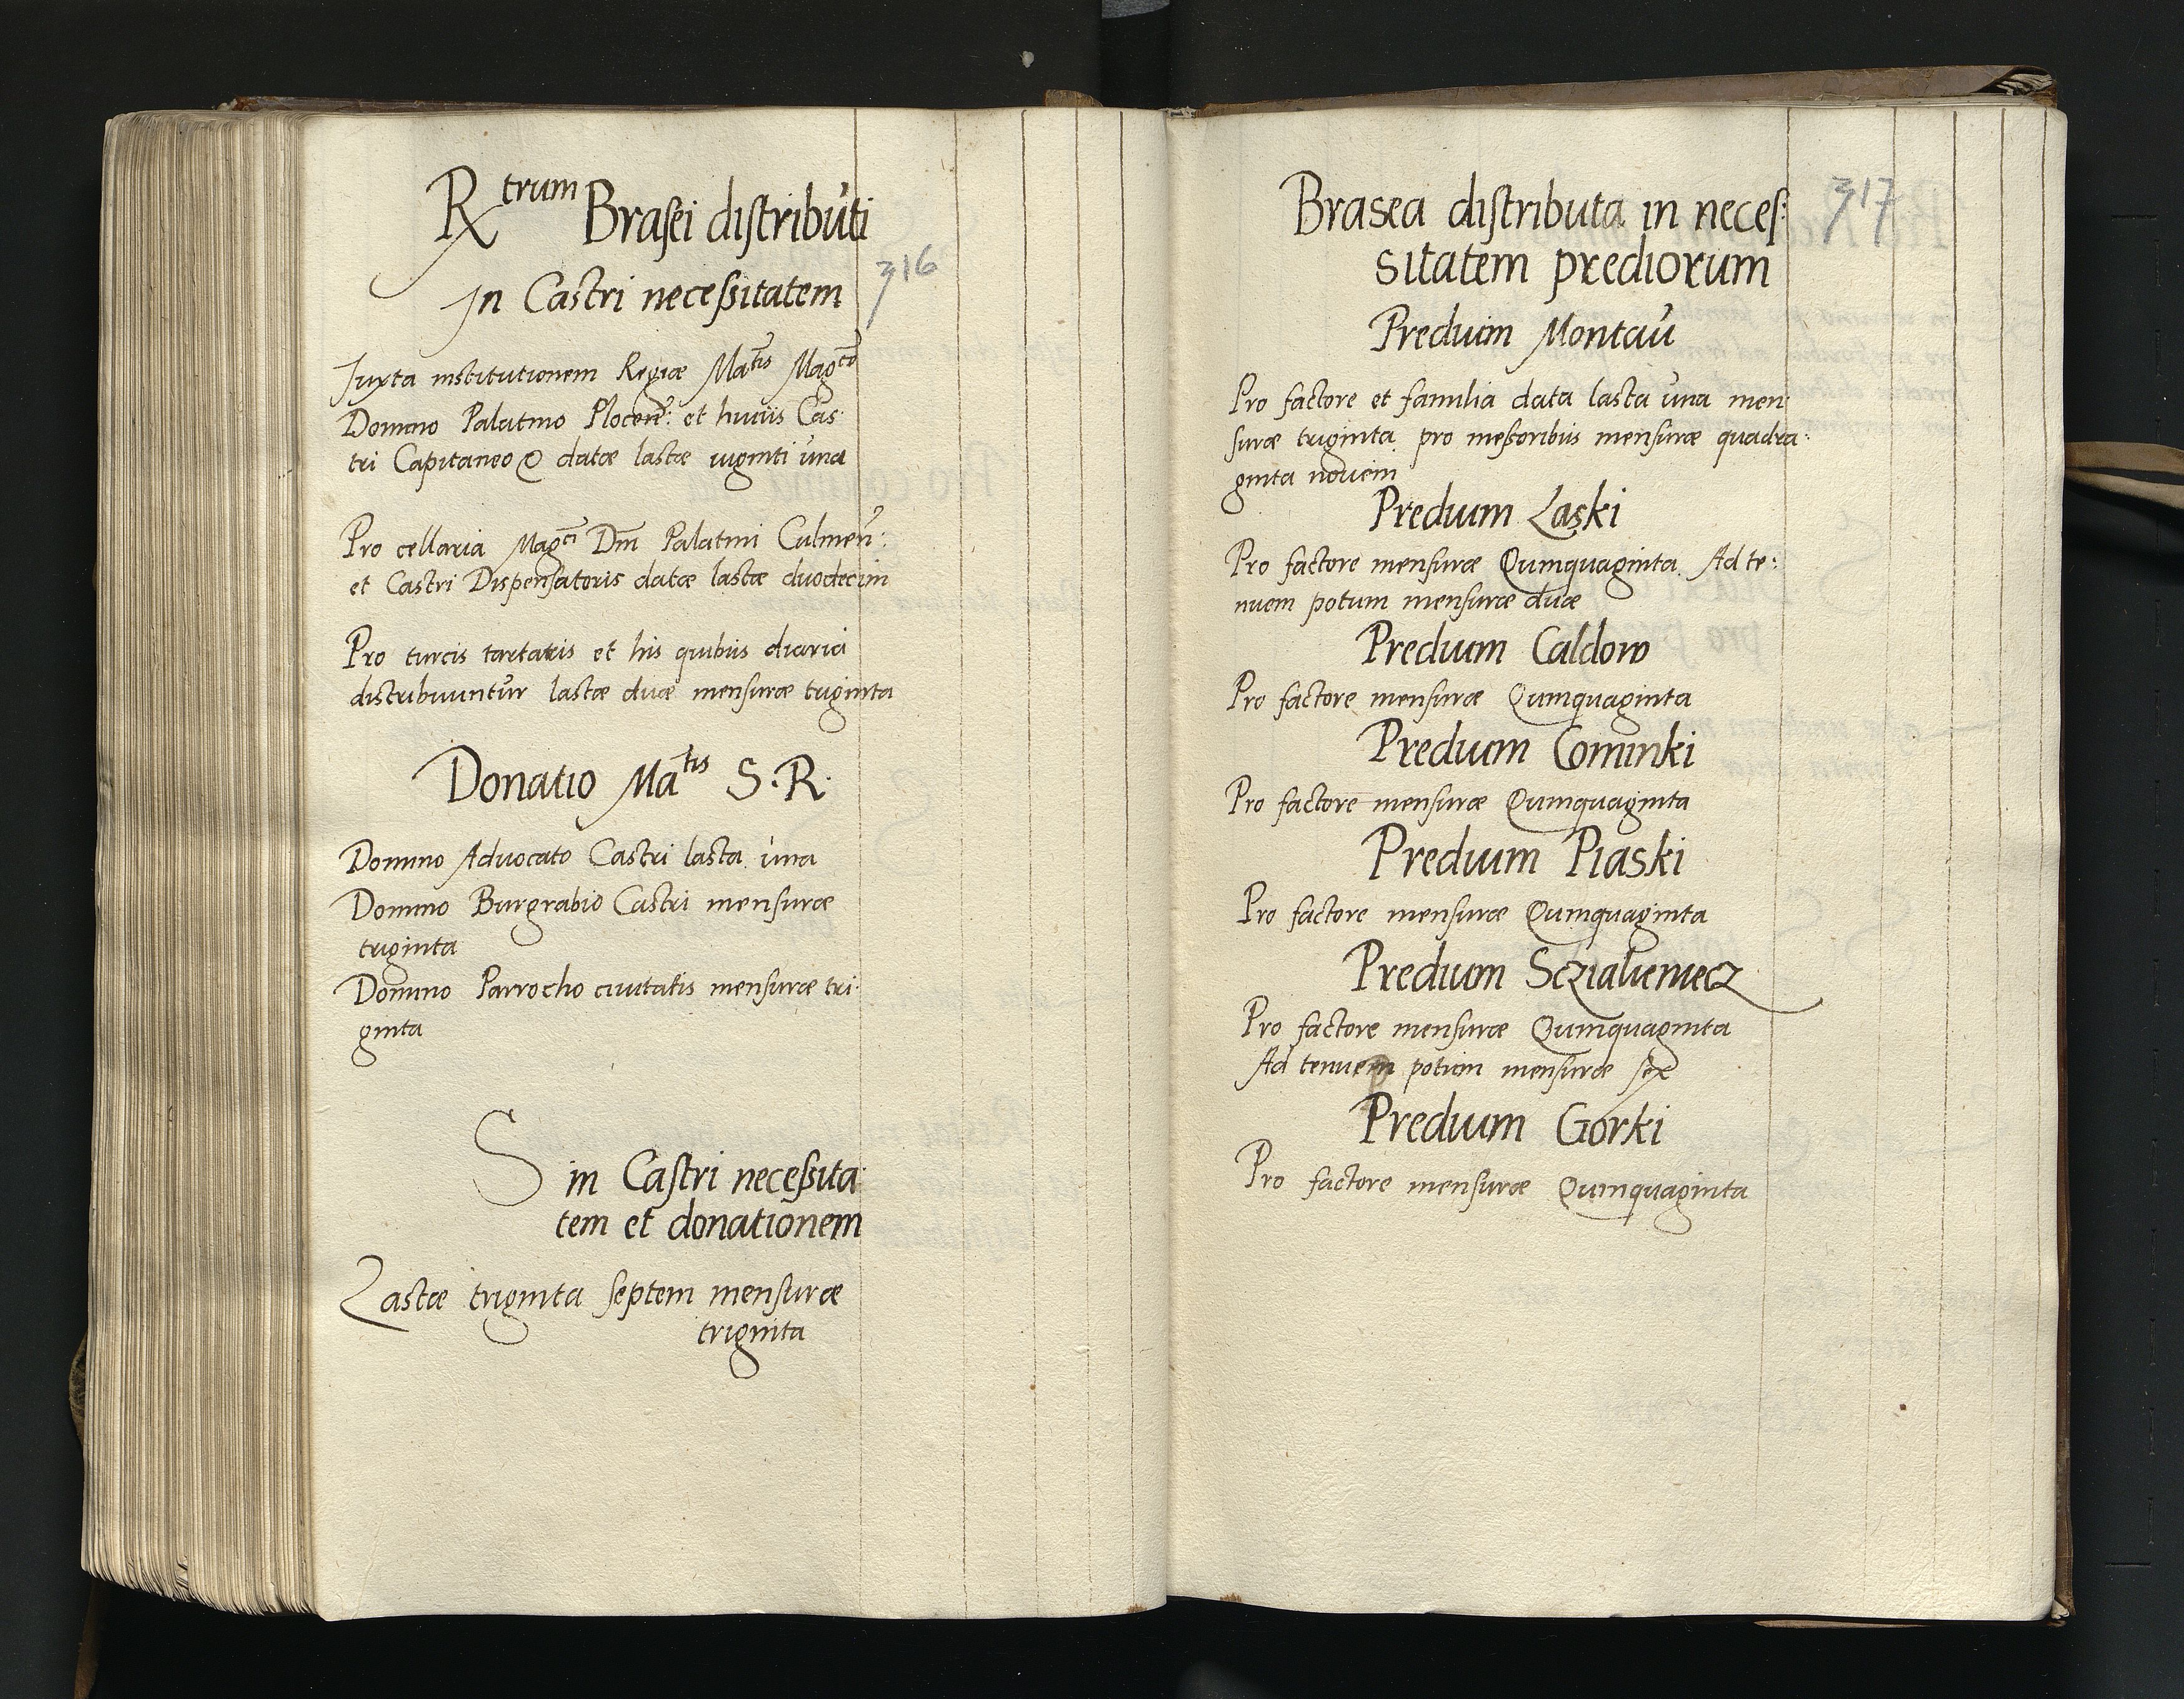 Rxtrum Brasei distributi
316
In Castri necessitatem
Iuxta institutionem Regiæ Matis Magco
Domino Palatino Plocen: et huius Cas:
tri Capitaneo datæ lastæ viginti una
Pro cellaria Magci Dni Palatini Culmen:
et Castri Dispensatoris datæ lastæ duodecim
Pro turcis tartaris et his quibus diaria
distribuuntur lastæ duæ mensuræ triginta
Donatio Matis S. R.
Domino Advocato Castri lasta una
Domino Burgrabio Castri mensuræ
triginta
Domino Parrocho civitatis mensuræ tri:
ginta
S in Castri necessita:
tem et donationem
Lastæ triginta septem mensuræ
triginta
Brasea distributa in neces:
317
sitatem prediorum
Predium Montau
Pro factore et familia data lasta una men
suræ triginta pro messoribus mensuræ quadra:
ginta novem
Predium Laski
Pro factore mensuræ Quinquaginta Ad te:
nuem potum mensuræ duæ
Predium Caldow
Pro factore mensuræ Quinquaginta
Predium Cominki
Pro factore mensuræ Quinquaginta
Predium Piaski
Pro factore mensuræ Quinquaginta
Predium Sczialiemecz
Pro factore mensuræ Quinquaginta
Ad tenuem potum mensuræ sex
Predium Gorki
Pro factore mensuræ Quinquaginta